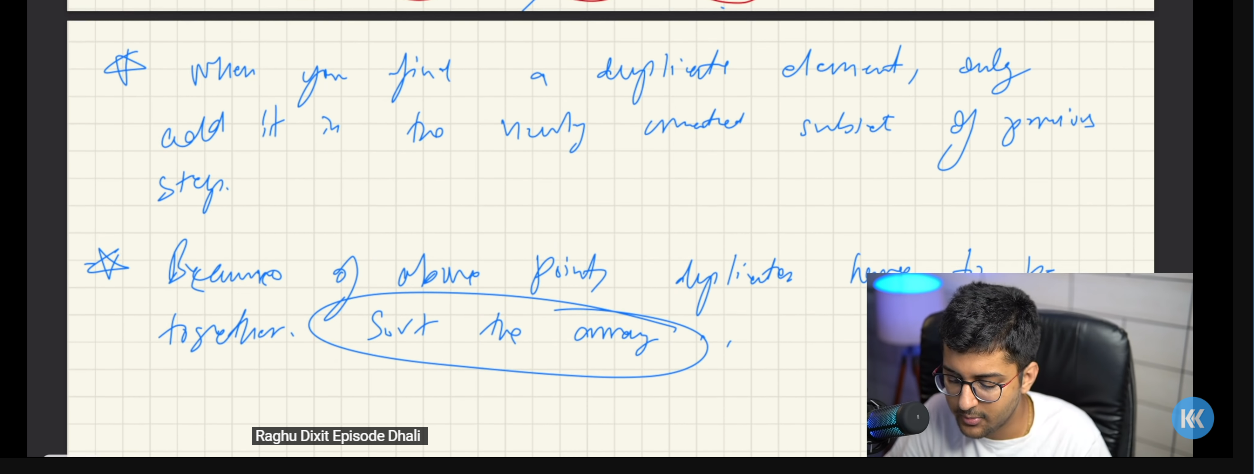 When you find a duplicate element, only
add it in the newly created subset of previous
step.
Because of above point, duplicates have to be
together. Sort the array.
Raghu Dixit Episode Dhali
KK